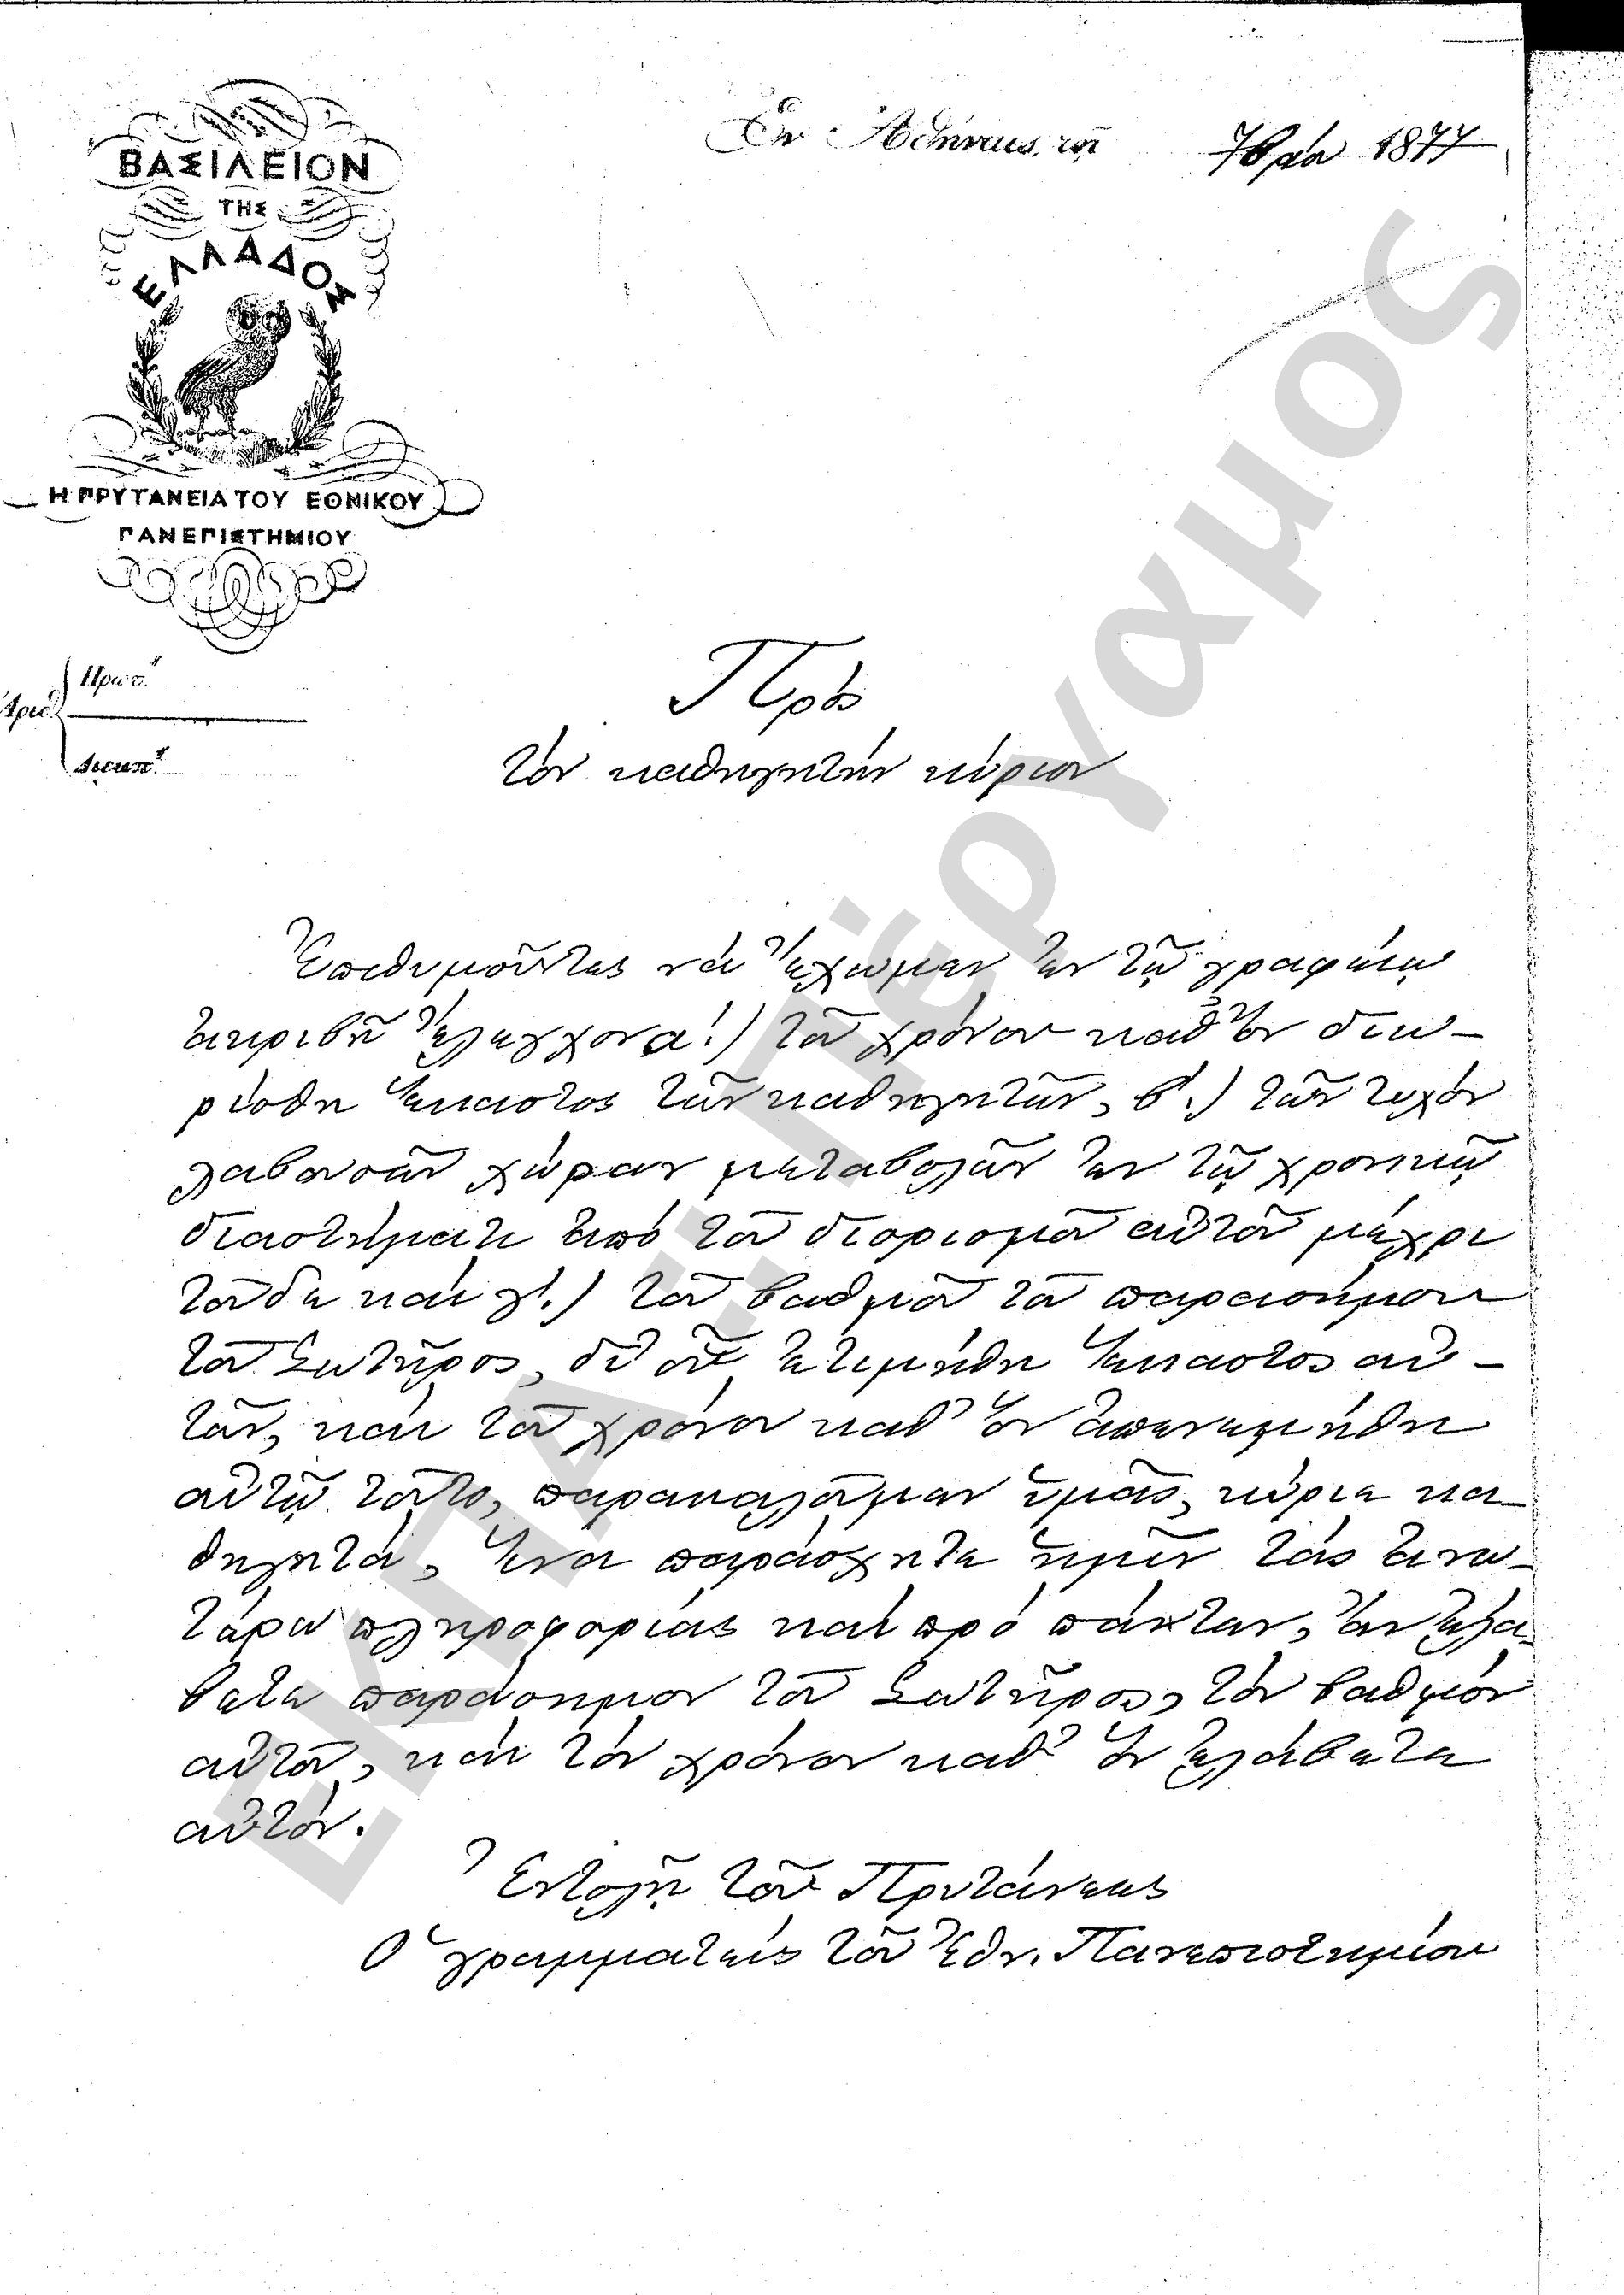 ΒΑΣΙΛΕΙΟΝ
ΤΗΣ
ΕΛΛΑΔΟΣ
Η ΠΡΥΤΑΝΕΙΑ ΤΟΥ ΕΘΝΙΚΟΥ
ΠΑΝΕΠΙΣΤΗΜΙΟΥ
Ἐν Ἀθήναις τῇ 7βρίου 1877
Ἀριθ.
Πρωτ.
Διεκπ.
Πρὸς
τὸν καθηγητὴν κύριον
Ἐπιθυμοῦντες νὰ ἔχωμεν ἐν τῷ γραφείῳ
ἀκριβῆ ἔλεγχον α΄.) τοῦ χρόνου καθ᾽ ὃν διω-
ρίσθη ἕκαστος τῶν καθηγητῶν, β΄.) τῶν τυχὸν
λαβουσῶν χώραν μεταβολῶν ἐν τῷ χρονικῷ
διαστήματι ἀπὸ τοῦ διορισμοῦ αὐτοῦ μέχρι
τοῦδε καὶ γ΄.) τοῦ βαθμοῦ τοῦ παρασήμου
τοῦ Σωτῆρος, δι᾽ οὗ ἐτιμήθη ἕκαστος αὐ-
τῶν, καὶ τοῦ χρόνου καθ᾽ ὃν ἀπενεμήθη
αὐτῷ τοῦτο, παρακαλοῦμεν ὑμᾶς, κύριε κα-
θηγητά, ἵνα παράσχητε ἡμῖν τὰς ἀνω-
τέρω πληροφορίας καὶ πρὸ πάντων, ἂν ἐλά-
βετε παράσημον τοῦ Σωτῆρος, τὸν βαθμὸν
αὐτοῦ, καὶ τὸν χρόνον καθ᾽ ὃν ἐλάβετε
αὐτόν.
Ἐντολῇ τοῦ Πρυτάνεως
Ὁ γραμματεὺς τοῦ Ἐθν. Πανεπιστημίου
ΕΚΠΑ - Πέργαμος